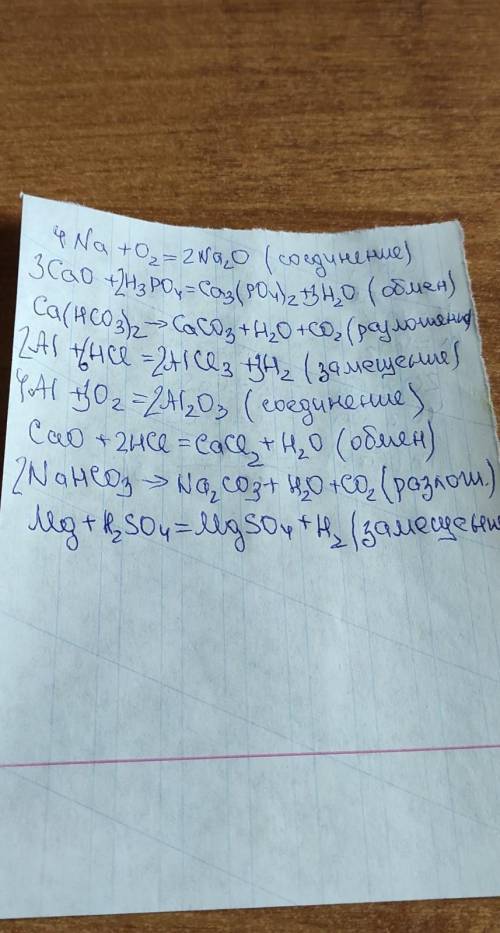 4Na + O₂ = 2Na₂O (соединение)
3CaO + 2H₃PO₄ = Ca₃(PO₄)₂ + 3H₂O (обмен)
Ca(HCO₃)₂ → CaCO₃ + H₂O + CO₂ (разложение
2Al + 6HCl = 2AlCl₃ + 3H₂ (замещение)
4Al + 3O₂ = 2Al₂O₃ (соединение)
CaO + 2HCl = CaCl₂ + H₂O (обмен)
2NaHCO₃ → Na₂CO₃ + H₂O + CO₂ (разлож.)
Mg + H₂SO₄ = MgSO₄ + H₂ (замещение